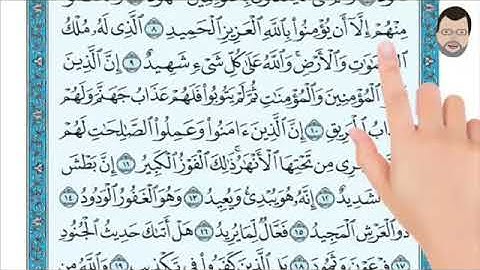 مِنْهُمْ إِلَّآ أَن يُؤْمِنُوا۟ بِٱللَّهِ ٱلْعَزِيزِ ٱلْحَمِيدِ ٨ ٱلَّذِى لَهُۥ مُلْكُ
وَٱلْأَرْضِ ۚ وَٱللَّهُ عَلَىٰ كُلِّ شَىْءٍ شَهِيدٌ ٩ إِنَّ ٱلَّذِينَ
ٱلْمُؤْمِنِينَ وَٱلْمُؤْمِنَـٰتِ ثُمَّ لَمْ يَتُوبُوا۟ فَلَهُمْ عَذَابُ جَهَنَّمَ وَلَهُمْ
١٠ إِنَّ ٱلَّذِينَ ءَامَنُوا۟ وَعَمِلُوا۟ ٱلصَّـٰلِحَـٰتِ لَهُمْ
مِن تَحْتِهَا ٱلْأَنْهَـٰرُ ۚ ذَٰلِكَ ٱلْفَوْزُ ٱلْكَبِيرُ ١١ إِنَّ بَطْشَ
لَشَدِيدٌ ١٢ إِنَّهُۥ هُوَ يُبْدِئُ وَيُعِيدُ ١٣ وَهُوَ ٱلْغَفُورُ ٱلْوَدُودُ ١٤
ذُو ٱلْعَرْشِ ٱلْمَجِيدُ ١٥ فَعَّالٌ لِّمَا يُرِيدُ ١٦ هَلْ أَتَىٰكَ حَدِيثُ ٱلْجُنُودِ
١٧ فِرْعَوْنَ وَثَمُودَ ١٨ بَلِ ٱلَّذِينَ كَفَرُوا۟ فِى تَكْذِيبٍ ١٩ وَٱللَّهُ مِن